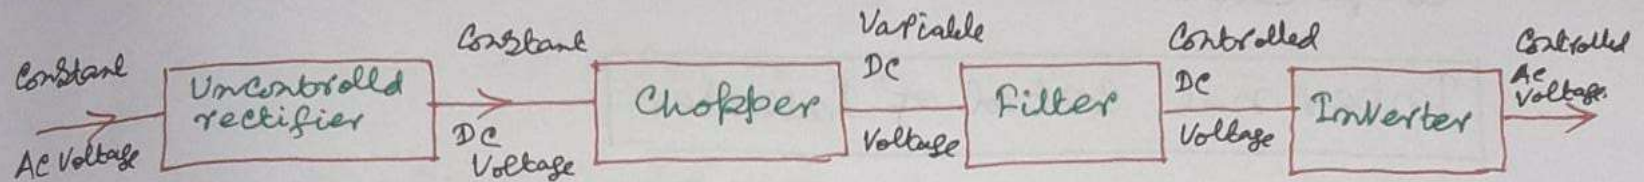 Constant
AC Voltage
Uncontrolled
rectifier
Constant
DC
Voltage
Chopper
Variable
DC
Voltage
Filter
Controlled
DC
Voltage
Inverter
Controlled
AC
Voltage.